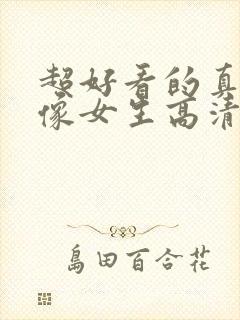 超好看的真
像女生高清
島田百合花